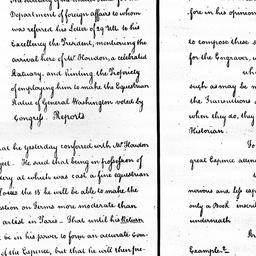 Department of foreign affairs to whom
was referred his Letter of 29 Ult. to his
Excellency the President, mentioning the
arrival here of Mr. Houdon, a celebrated
Statuary, and hinting the Propriety
of employing him to make the Equestrian
Statue of General Washington voted by
Congress. Reports
hat he yesterday confered with Mr. Houdon
He said that being in possession of
at which was cast a fine equestrian
Louis the 15 he will be able to make the
uestion on Terms more moderate than
artist in Paris - That until his Return
t be in his power to form an accurate
of the Expence, but that he will then
fore in his opinion
to compose these
for the Engraver,
such as may be
the Transactions
when they do, they
Historian
To
great Expence
nervous and
only a Book
underneath
Example.